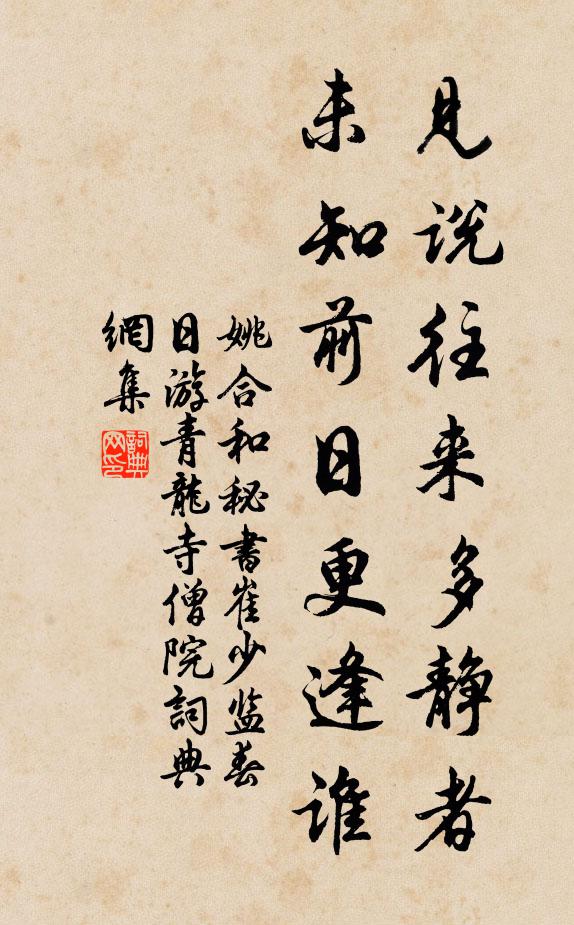 见说往来多静者
未知前日更逢谁
姚合和秘书崔少监春
日游青龍寺僧院詞典
網集
詞典网印